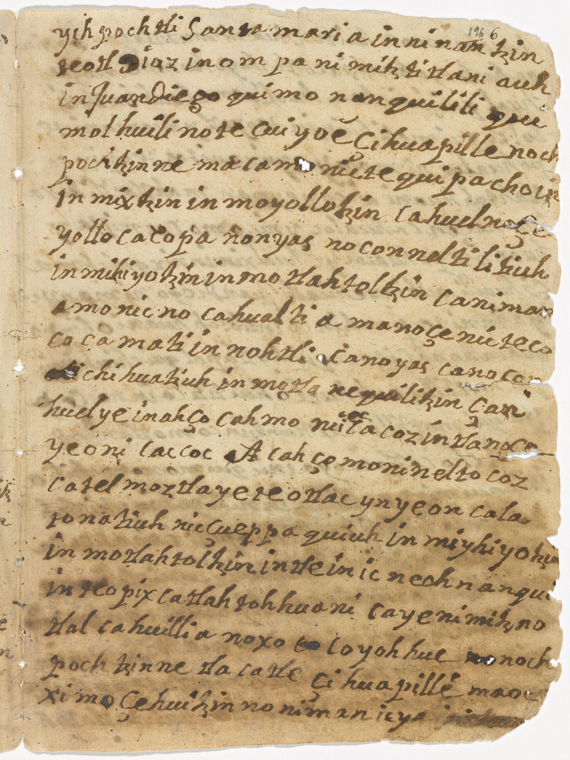 196 6
ych pochtli Santa maria in ni nan tzin
teotl Diaz in om pa ni mitz ti tlani auh
in Juan Diego qui mo nanquilili qui
mol huili note cui yoe Çihuapille noch
pochtzinne ma ca mo nictequi pacho in
in mix tzin in moyollotzin ca huel noçe
yollo cacopa nonyas noconneltilitiuh
in mihiyotzin in mo tlahtoltzin ca niman
amo nic no cahualti a manoçe nicteco
co ca mati in nohtli Canoyas ca no con
chihuatiuh in motla nequilitzin Can
huel ye in ahço cahmo nicacoz intlanoço
yeoni caccoc Acahço moni neltocoz
ca tel moztla ye teotlac yn ye on cala
tonatiuh niccueppa quiuh in miyhiyotzi
in motlahtoltzin intle in ic nech nanqui
in teopixcatlahtohhuani ca ye nimitzno
tlal cahuillia noxo coyohhue noch
pochtzinne tla catle Çihuapille maoc
xi moçehuitzin no niman ic ya